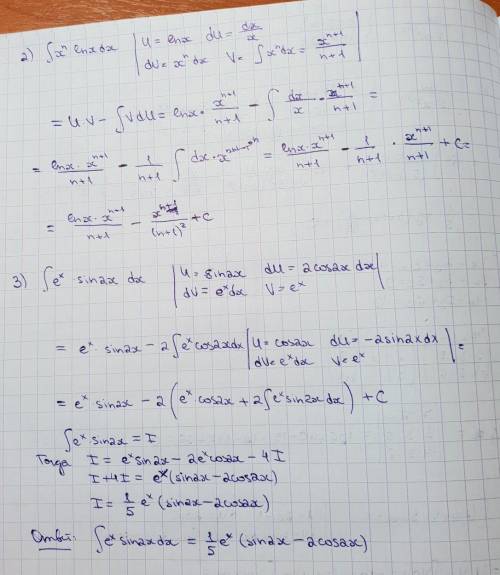 2) ∫xⁿ lnx dx | u = lnx du = dx/x
dv = xⁿdx v = ∫xⁿdx = xⁿ⁺¹/(n+1) |
= u·v − ∫vdu = lnx · xⁿ⁺¹/(n+1) − ∫ dx/x · xⁿ⁺¹/(n+1) =
= lnx·xⁿ⁺¹/(n+1) − 1/(n+1) ∫ dx·xⁿ⁺¹⁻¹ⁿ = lnx·xⁿ⁺¹/(n+1) − 1/(n+1) · xⁿ⁺¹/(n+1) + C =
= lnx·xⁿ⁺¹/(n+1) − xⁿ⁺¹/(n+1)² + C
3) ∫eˣ sin2x dx | u = sin2x du = 2cos2x dx |
| dv = eˣdx v = eˣ |
= eˣ · sin2x − 2∫eˣcos2xdx | u = cos2x du = −2sin2xdx | =
| dv = eˣdx v = eˣ |
= eˣ sin2x − 2(eˣcos2x + 2∫eˣsin2xdx) + C
∫eˣ sin2x = I
Тогда I = eˣsin2x − 2eˣcos2x − 4I
I + 4I = eˣ(sin2x − 2cos2x)
I = 1/5 eˣ (sin2x − 2cos2x)
Ответ: ∫eˣsin2xdx = 1/5 eˣ (sin2x − 2cos2x)